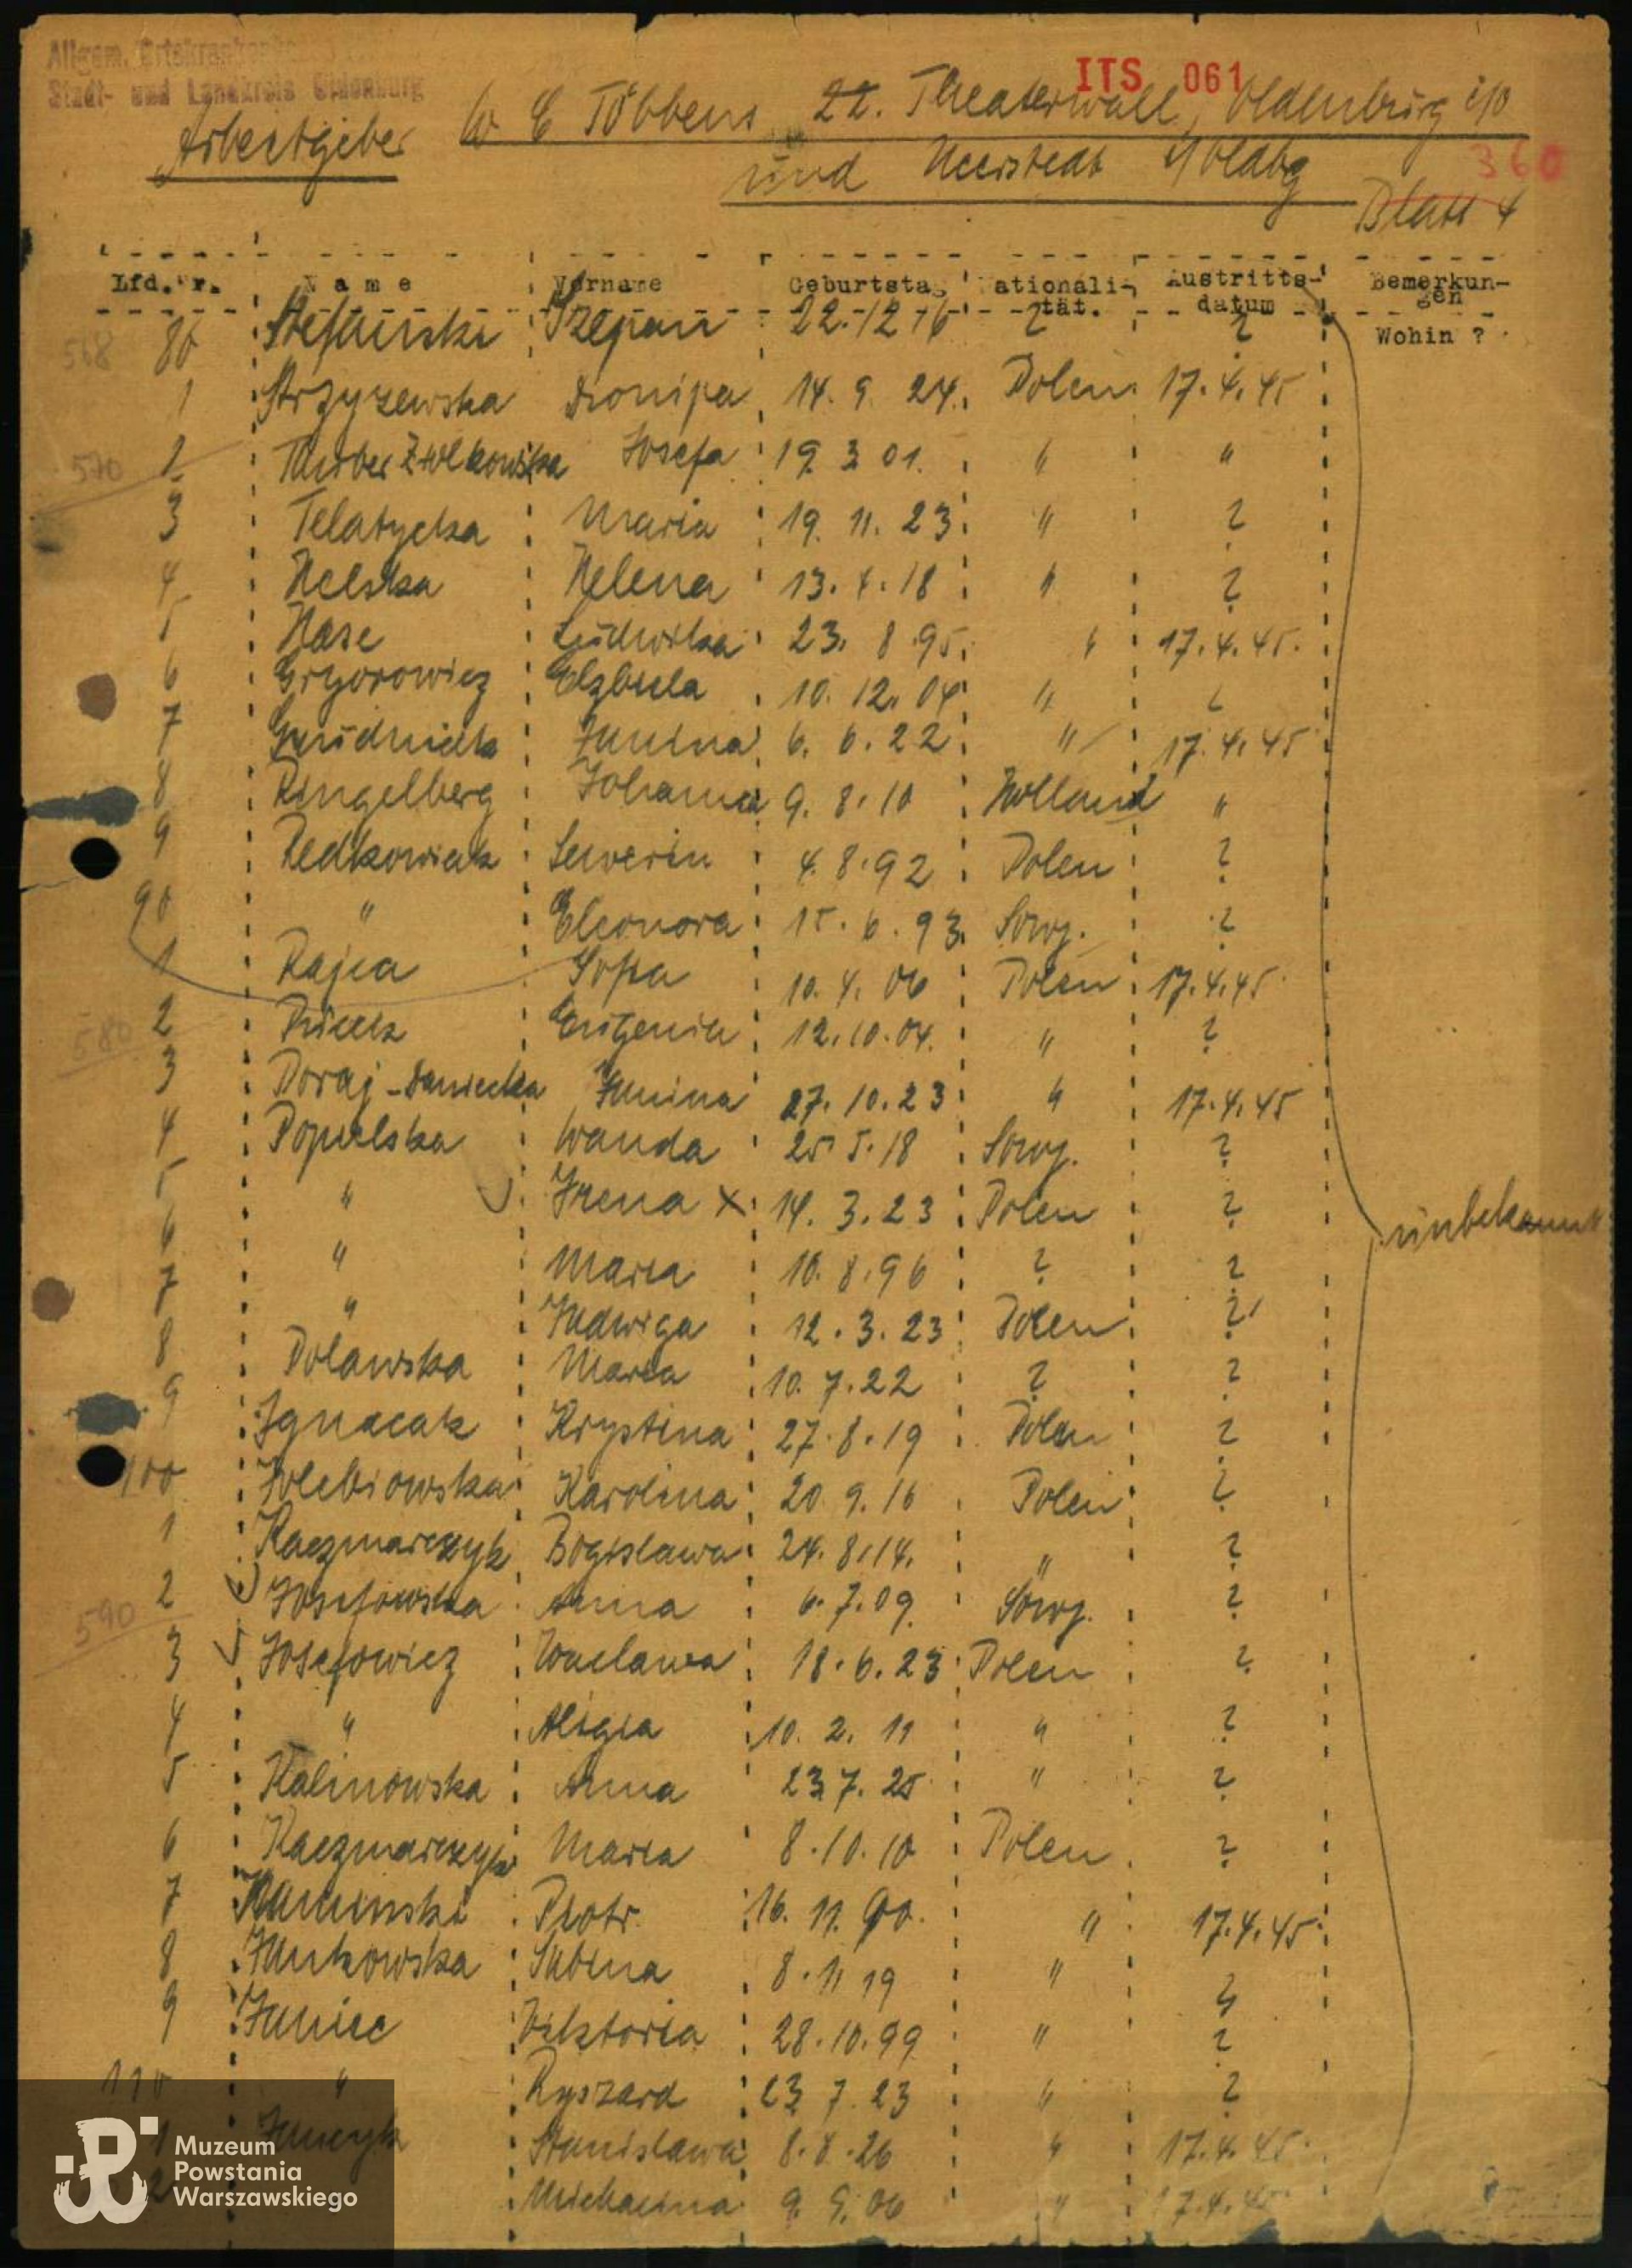 Allgem. Ortskrankenkasse
Stadt- und Landkreis Oldenburg
ITS 061
Arbeitgeber W C Többens 22. Theaterwall, Oldenburg i/o
und Neerstedt i/Oldbg
360
Blatt 4
Lfd. Nr. Name Vorname Geburtstag Nationalität. Austrittsdatum Bemerkungen
Wohin ?
568 80 Stefanski Szepan 22.12.16 ? ?
1 Strzyzewska 14. 9. 24. Polen 17.4.45
570 2 Josefa 19. 3. 01. " "
3 Telatycka Maria 19. 11. 23 " ?
4 Helska Helena 13. 4. 18 " ?
5 Hase Ludwika 23. 8. 95. " 17.4.45.
6 Grzorowicz 10. 12. 04 " ?
7 Janina 6. 6. 22 " 17.4.45
8 Ringelberg Johanna 9. 8. 10 Holland "
9 Redkowiak Sewerin 4. 8. 92 Polen ?
90 " Eleonora 15. 6. 93. Sowj. ?
1 Rajca Sofia 10. 4. 06 Polen 17.4.45
580 2 Eugenia 12. 10. 04. " ?
3 Janina 27. 10. 23 " 17.4.45
4 Popielska Wanda 25. 5. 18 Sowj. ?
5 " Irena x 14. 3. 23 Polen ?
unbekannt
6 " Maria 10. 8. 96 ? ?
7 " Jadwiga 12. 3. 23 Polen ?
8 Polawska Maria 10. 7. 22 ? ?
9 Ignacak Krystina 27. 8. 19 Polen ?
100 Golebiowska Karolina 20. 9. 16 Polen ?
1 Kaczmarczyk Bogislawa 24. 8. 14. " ?
590 2 Josefowska Anna 6. 7. 09 Sowj. ?
3 Josefowicz Waclawa 18. 6. 23 Polen ?
4 " Aligia 10. 2. 11 " ?
5 Kalinowska Anna 23. 7. 25 " ?
6 Kaczmarczyk Maria 8. 10. 10 Polen ?
7 Kaminski Piotr 16. 11. 90. " 17.4.45
8 Jankowska Sabina 8. 11. 19 " ?
9 Janiec Viktoria 28. 10. 99 " ?
110 " Ryszard 23. 7. 23 " ?
1 Stanislawa 8. 8. 26 " 17.4.45
2 Michalina 9. 9. 06 " 17.4.45
Muzeum
Powstania
Warszawskiego